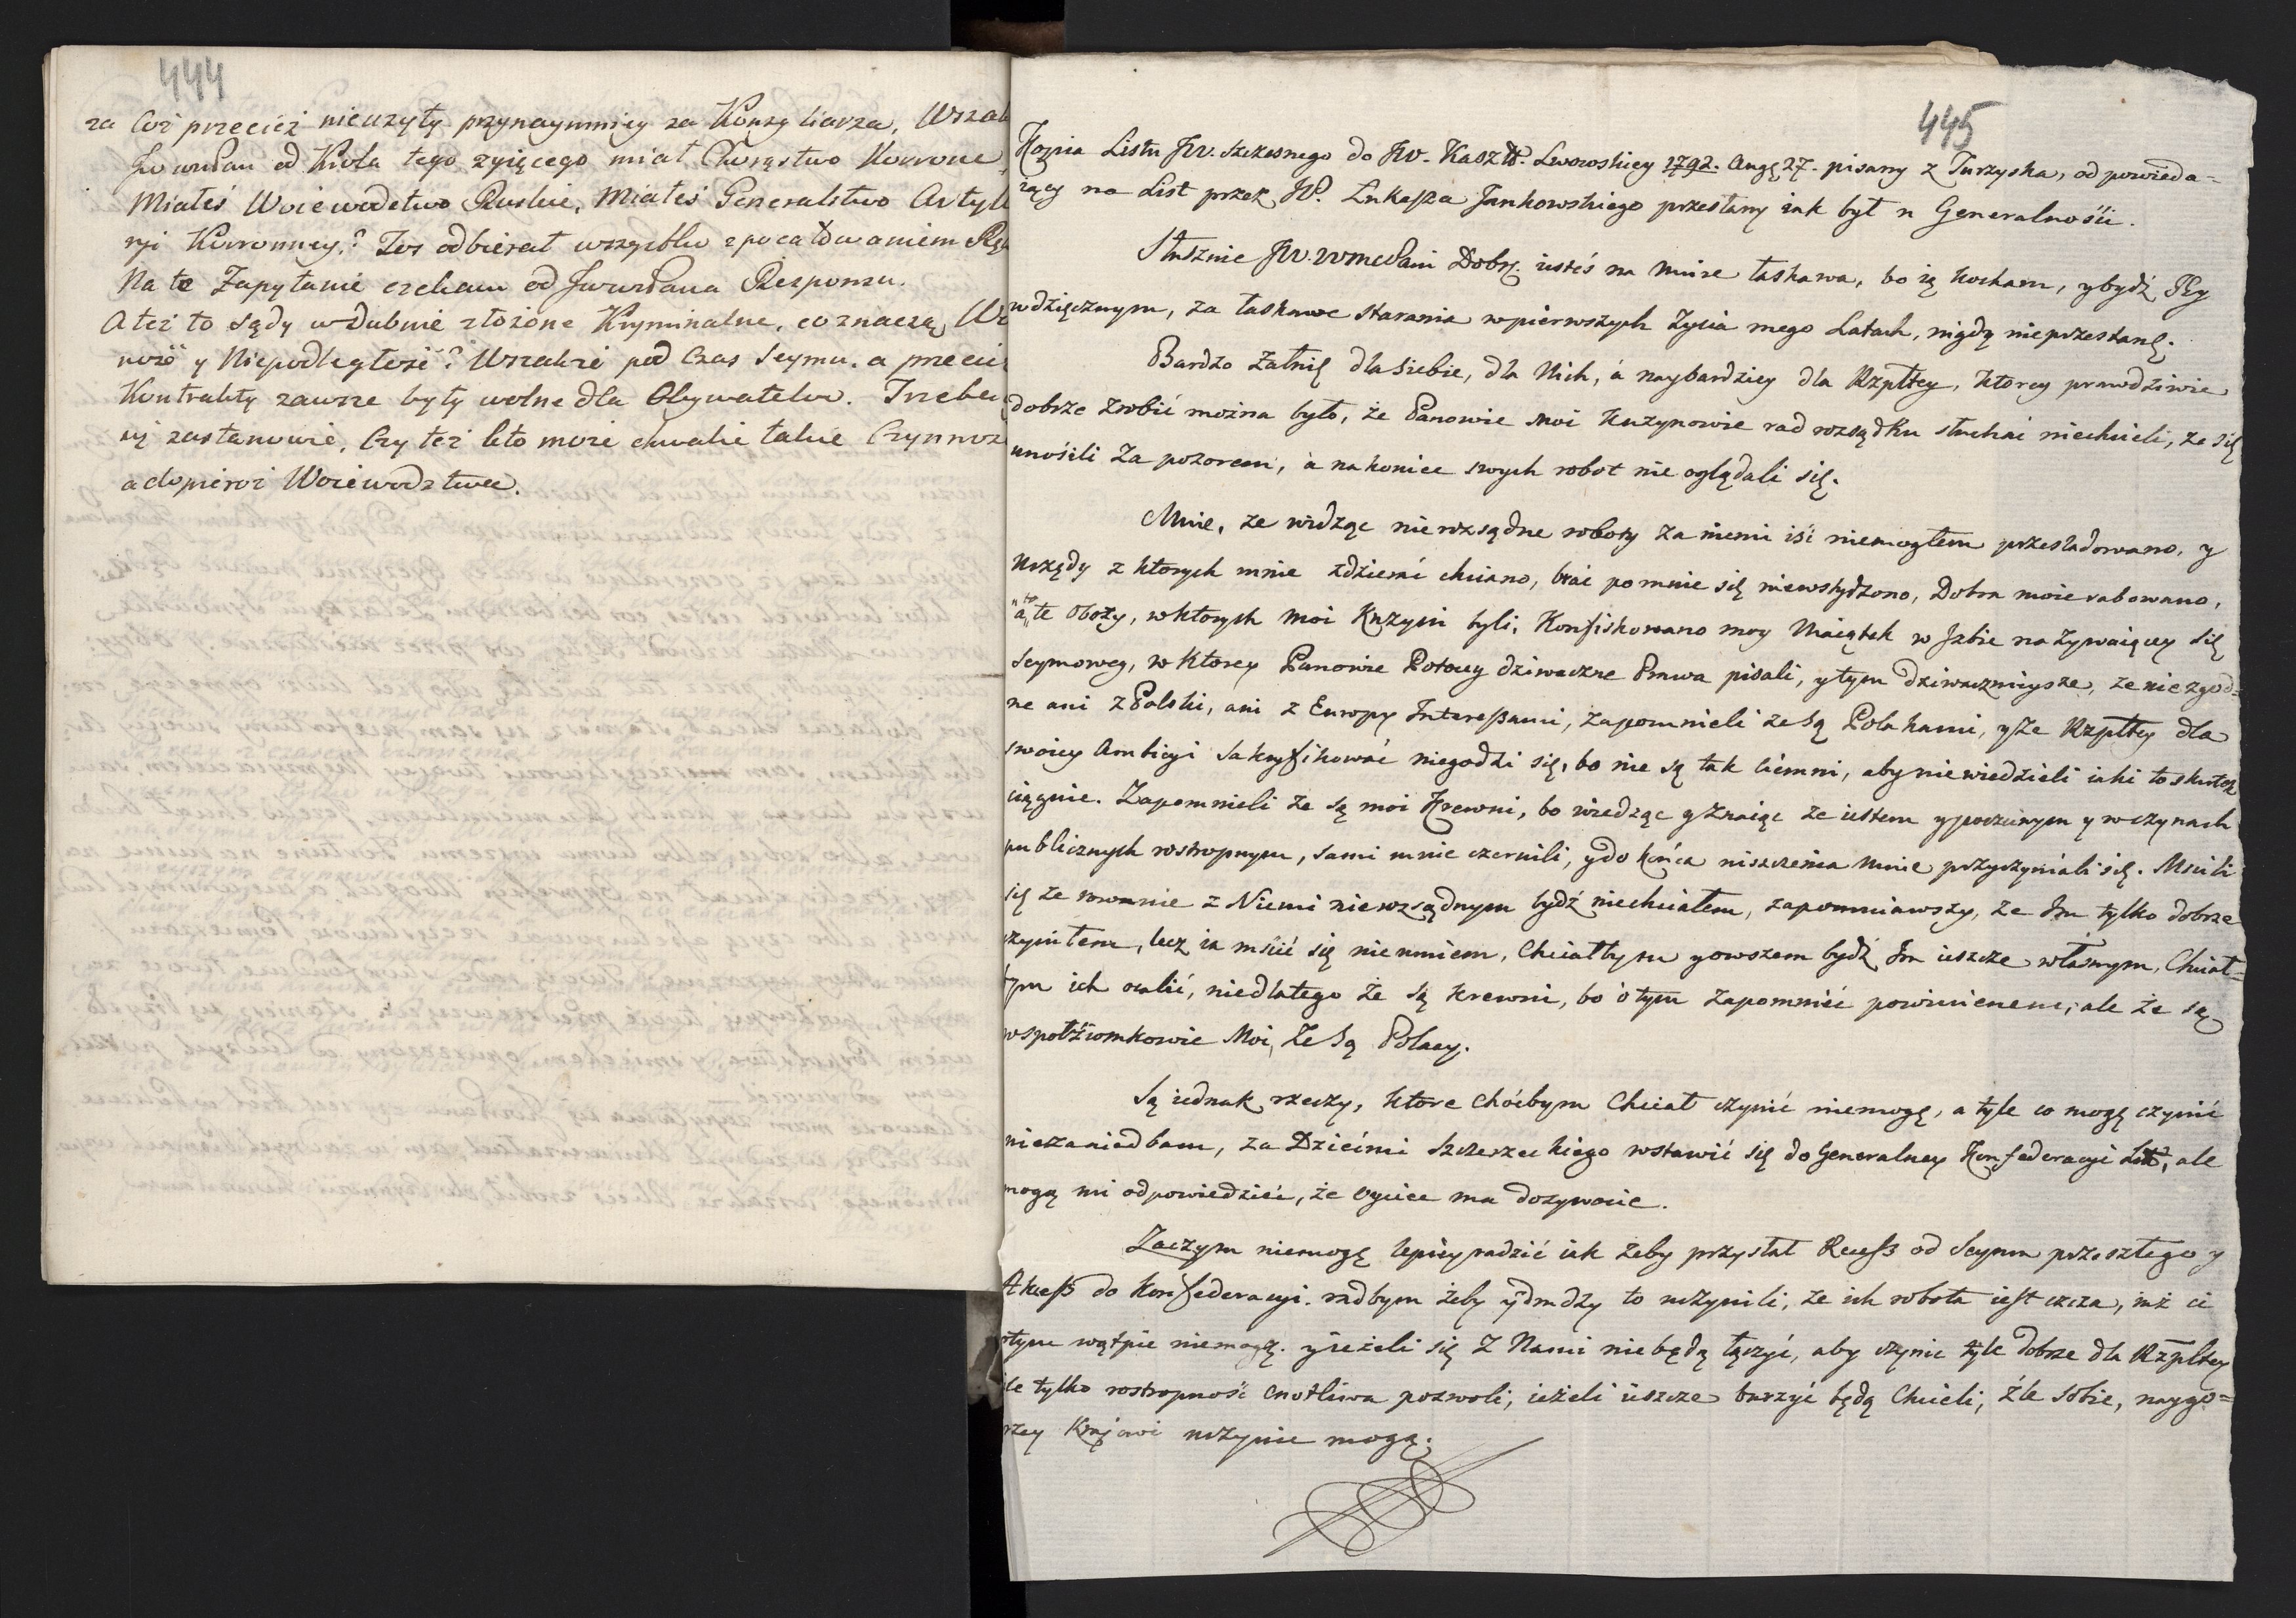 444
za Coż przecież nieuzyty przynaymniey za Konsyliarza, Wszak
JwwPan od Krola tego zyiącego miał Chorąstwo Koronne,
Miałeś Woiewodztwo Ruskie, Miałeś Generalstwo Artyll
ryi Koronney? Toż odbierał wszystko z pocałowaniem Rę
Na te Zapytanie czekam od JwwPana Responsu.
A też to Sądy w Dubnie złożone Kryminalne, co znaczą, W
ność y Niepodległość? Wszakże pod Czas Seymu. a przecie
Kontrakty zawsze były wolne dla Obywatelow. Trzeba
się zastanowić, Czy też kto może chwalić takie Czynnoś
a dopieroż Woiewodztwa.
445
Kopia Listu JW. Szczesnego do JW. Kasztt. Lwowskiey 1792. Aug. 27. pisany z Turzyska, odpowieda=
iący na List przez JP. Łukasza Jankowskiego przesłany iak był n Generalności.
Słusznie JW. WMCPani Dobr. iesteś na mnie łaskawa, bo ią kocham, y bydź Jey
wdzięcznym, za łaskawe starania w pierwszych życia mego Latach, nigdy nieprzestanę.
Bardzo żałuię dla siebie, dla Nich, á naybardziey dla Rzpltey, ktorey prawdziwie
dobrze zrobić można było, że Panowie moi Kuzynowie rad rozsądku słuchać niechcieli, że się
unośili za pozorem, á na koniec swych robot nie oglądali się.
Mnie, że widząc nierozsądne roboty za niemi iść niemogłem przesladowano, y
Urzędy z ktorych mnie zdzierać chciano, brać po mnie się niewstydzono, Dobra moie rabowano,
a to te Obozy, w ktorych moi Kuzyni byli, Konfiskowano moy Maiątek w Jzbie nazywaiącey się
Seymowey, w ktorey Panowie Potoccy dziwaczne Prawa pisali, y tym dziwacznieysze, że niezgod=
ne ani z Polski, ani z Europy Interessami, zapomnieli że są Polakami, y że Rzpltey dla
swoiey Ambicyi Sakryfikować niegodzi się, bo nie są tak ciemni, aby niewiedzieli iaki to skutek
ciągnie. Zapomnieli że są moi Krewni, bo wiedząc y znaiąc że iestem y poczciwym y w czynach
publicznych rostropnym, sami mnie czernili, y do końca niszczenia mnie przyczyniali się. Mscili
się że rownie z Niemi nierozsądnym bydź niechciałem, zapomniawszy, że Im tylko dobrze
czyniłem, lecz ia mścić się nieumiem, Chciałbym y owszem bydź Im ieszcze własnym, Chciał=
bym ich ocalić, niedlatego że są Krewni, bo o tym zapomnieć powinienem, ale że są
wspołziomkowie Moi, że są Polacy.
Są iednak rzeczy, ktore choćbym Chciał czynić niemogę, a tyle co mogę czynić
niezaniedbam, za Dziećmi Szczerzeckiego wstawić się do Generalney Konfederacyi Litt, ale
mogą mi odpowiedzieć, że Oyciec ma dożywocie.
Zaczym niemogę lepiey radzić iak żeby przysłał Recess od Seymu przeszłego y
Akcess do Konfederacyi. radbym żeby y drudzy to uczynili, że ich robota iest czcza, iuż ci
otym wątpić niemogą. y ieżeli się z Nami niebędą łączyć, aby czynić tyle dobrze dla Rzpltey
ile tylko rostropność cnotliwa pozwoli, ieżeli ieszcze burzyć będą Chcieli, źle sobie, naygo=
rzey Krajowi uczynić mogą.